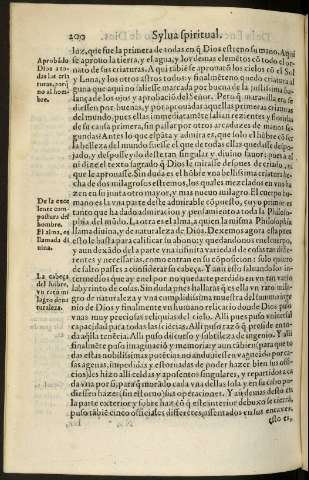 200 Sylua spiritual.
luz, que fue la primera de todas en q̃ Dios estreno su mano. Aqui
se aprobo la tierra, y el agua, y los demas elemẽtos cõ todo el or-
nato de sus criaturas. A qui tãbiẽ se aprouarõ los cielos cõ el Sol
y Luna, y los otros astros todos: y finalmẽte no quedo criatura al
guna que aqui no saliesse marcada por buena de la justissima ba-
lança de los ojos y aprobaciõ del Señor. Pero q̃ marauilla era, se
diessen por buenas, y por aprouadas aquellas primeras criaturas
del mundo, pues ellas immediatamẽte salian rezientes
de su causa primera, sin passar por otros arcaduzes de manos se-
gundas: Antes lo que espãta y admira es, que solo el hõbre cõ ser
la belleza del mundo fuesse el que de todas ellas quedasse despo-
jado, y despues y lo deste tan singular y diuino fauor: pues a el
ni dize el texto sagrado q̃ Dios le mirasse despues de criado, ni
que le aprouasse. Sin duda es el hõbre vna bellissima criatura he-
cha de dos milagrosos estremos, los quales mezclados en vno ha
zen en si junto otro mayor, y mas nueuo milagro. El cuerpo hu-
mano es la vna parte deste admirable cõpuesto, cuyo primor es
tanto que ha dado admiracion y pensamiento a toda la Philoso-
phia del mũdo. La otra es el alma, a quien la misma Philosophia
llama diuina, y de naturaleza de Dios. Dexemos agora
esto le basta para calificar su abono: y quedandonos en el cuerpo,
y aun dexãdo del a parte vna infinita variedad de cosas tan dife-
rentes y necessarias, como entran en su cõposicion: solo quiero
de falso passes a considerar su cabeça. Y aun esso
en medios que ay en el por no quedarte perdido en vn tan vario
labyrinto de cosas. Sin duda pues hallaras q̃ es ella vn raro mila-
gro de naturaleza y vna cumplidissima muestra del summo inge
nio de Dios y finalmente vn humano relicario donde Dios puso
vnas muy preciosas reliquias del cielo. Alli pues puso vniuersal
capacidad para todas las sciẽcias. Alli puso razõ q̃ preside en to-
da aq̃lla tenẽcia. Alli puso discurso y subtileza de ingenio. Y alli
finalmẽte puso imaginaciõ y memoria: y aun ciencia para que to
das estas nobilissimas potẽcias, no anduuiessen vagueãdo por ca-
sas agenas, impedidas y estoruadas de poder hazer bien sus offi-
cios) les hizo alli celdas y aposentos singulares, y repartidos a ca
da vna por si, para q̃ morãdo cada vna dellas sola y en su cabo pu-
diessen hazer (sin estoruo) sus operaciones. Y aun demas desto en
la parte exterior y sobre haz cõ q̃ este interior debuxo se cierra,
puso tãbiẽ cinco officiales differẽtes, assentados en sus entaxes,
esto es,
Aprobãdo
Dios a to-
das las cria
turas, porq̃
no al hom-
bre.
De la exce
lente com-
postura del
hombre.
El alma, es
llamada di
uina.
La cabeça
del hõbre,
vn raro mi
lagro de na
turaleza.